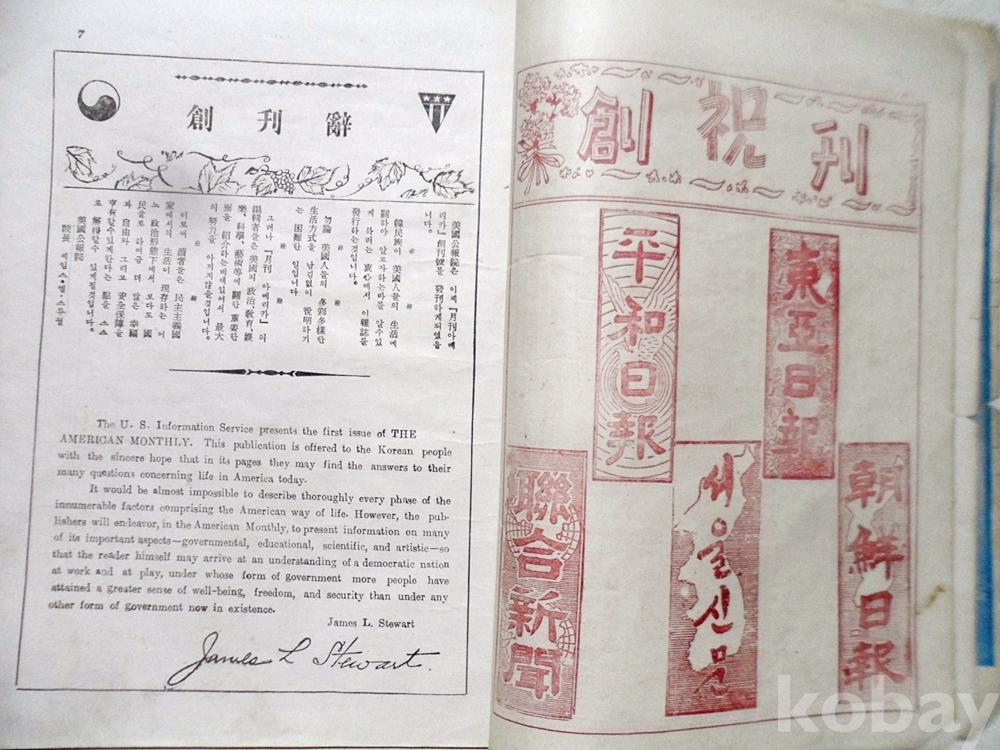 7
創刊辭
美國公報院은 이제 「月刊아메
리카」 創刊號를 發刊하게되었읍
니다。
韓民族이 美國人들의 生活에
關하야 알고자하는바를 알수있
게 하려는 衷心에서 이雜誌를
發行하는것입니다。
勿論 美國人들의 多彩多樣한
生活方式을 남김없이 說明하기
는 困難한 일입니다
그러나 「月刊 아메리카」의
編輯者들은 美國의 政治、敎育、娛
樂、科學、藝術等에 關한 重要한
面을 紹介하는데에있어서 最大
의 努力을 아끼지않을것입니다。
이로써 讀者들은 民主主義國
家에서의 生活이 現存하는 어
느 政治形態下에서 보다도 國
民들로 하여금 더 많은 幸福
과 自由와 그리고 安全保障을
享有할수있게한다는 點을 스스
로 解得할수 있게될것입니다。
美國公報院
院長 제임스·엘·스튜월
The U. S. Information Service presents the first issue of THE
AMERICAN MONTHLY. This publication is offered to the Korean people
with the sincere hope that in its pages they may find the answers to their
many questions concerning life in America today.
It would be almost impossible to describe thoroughly every phase of the
innumerable factors comprising the American way of life. However, the pub-
lishers will endeavor, in the American Monthly, to present information on many
of its important aspects—governmental, educational, scientific, and artistic—so
that the reader himself may arrive at an understanding of a democratic nation
at work and at play, under whose form of government more people have
attained a greater sense of well-being, freedom, and security than under any
other form of government now in existence.
James L. Stewart
James L Stewart.
創祝刊
東亞日報
平和日報
朝鮮日報
서울신문
聯合新聞
kobay